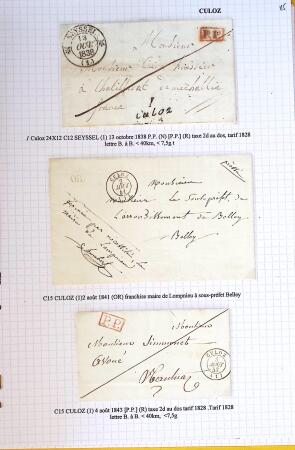 CULOZ
SEYSSEL
13
OCT.
1838
(1)
P.P.
Monsieur
Monsieur
à Chatillon de michaille
france
1
Culoz
/ Culoz 24X12 C12 SEYSSEL (1) 13 octobre 1838 P.P. (N) [P.P.] (R) taxe 2d au dos, tarif 1828
lettre B. à B. < 40km, < 7,5g t
OR
CULOZ
2
AOUT
41
Monsieur
Monsieur Le Sous-préfet de
L'arrondissement de Belley
Belley
C15 CULOZ (1)2 août 1841 (OR) franchise maire de Lompnieu à sous-préfet Belley
P.P.
Monsieur
Monsieur Simmonet
Avoué
Nantua
CULOZ
4
AOUT
43
(1)
C15 CULOZ (1) 4 août 1843 [P.P.] (R) taxe 2d au dos tarif 1828 .Tarif 1828
lettre B. à B. < 40km, <7,5g